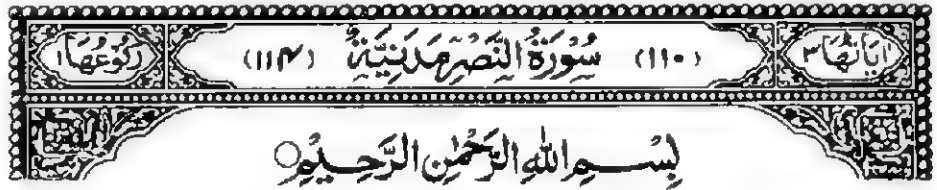 اٰيَاتُهَا ٣ (١١٠) سُوْرَةُ النَّصْرِ مَدَنِيَّةٌ (١١۴) رُكُوْعُهَا ١
بِسْمِ اللّٰهِ الرَّحْمٰنِ الرَّحِيْمِ○